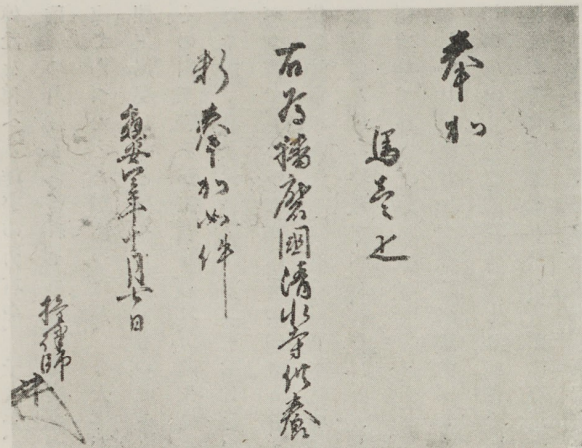 奉加
馬壱疋
右為播磨國清水寺供養
料奉加如件
弘安四年十月七日
律師